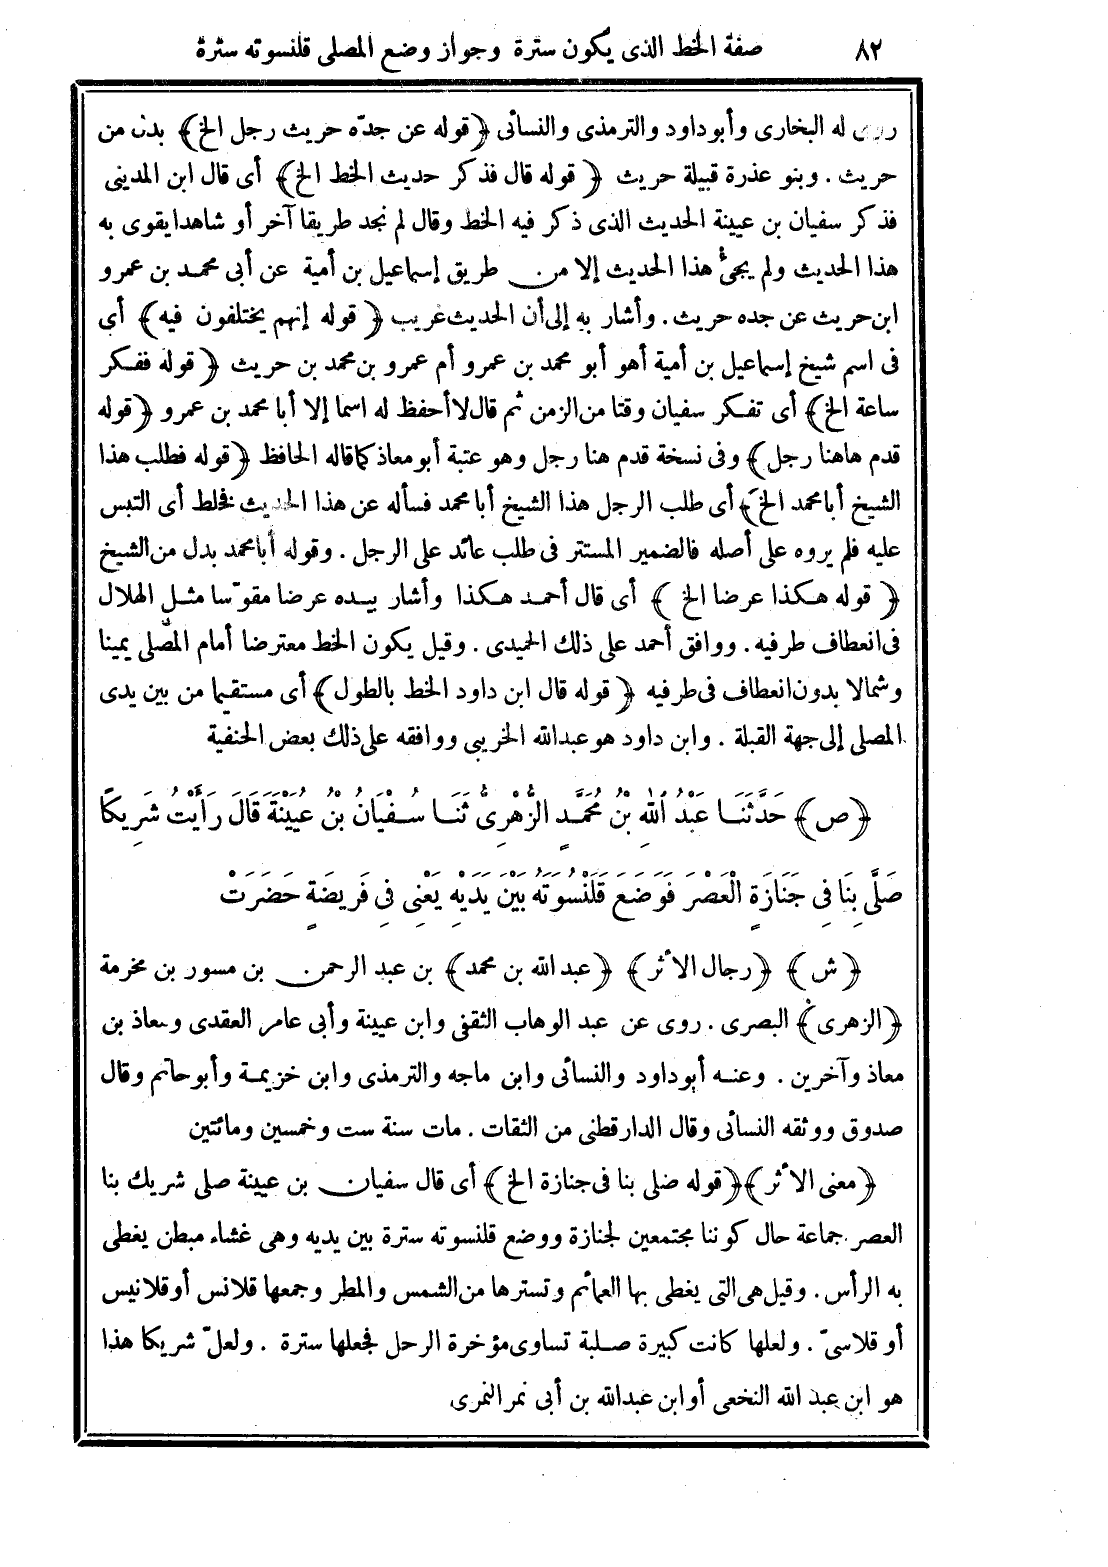 ٨٢ صفة الخط الذى يكون سترة وجواز وضع المصلى قلنسوته سترة
روى له البخارى وأبوداود والترمذى والنسائى ﴿قوله عن جدّه حريث رجل الخ﴾ بدل من
حريث . وبنو عذرة قبيلة حريث ﴿قوله قال فذكر حديث الخط الخ﴾ أى قال ابن المدينى
فذكر سفيان بن عيينة الحديث الذى ذكر فيه الخط وقال لم نجد طريقا آخر أو شاهدا يقوى به
هذا الحديث ولم يجئ هذا الحديث إلا من طريق إسماعيل بن أمية عن أبى محمد بن عمرو
ابن حريث عن جده حريث . وأشار به إلى أن الحديث غريب ﴿قوله إنهم يختلفون فيه﴾ أى
فى اسم شيخ إسماعيل بن أمية أهو أبو محمد بن عمرو أم عمرو بن محمد بن حريث ﴿قوله ففكر
ساعة الخ﴾ أى تفكر سفيان وقتا من الزمن ثم قال لا أحفظ له اسما إلا أبا محمد بن عمرو ﴿قوله
قدم هاهنا رجل﴾ وفى نسخة قدم هنا رجل وهو عتبة أبو معاذ كما قاله الحافظ ﴿قوله فطلب هذا
الشيخ أبا محمد الخ﴾ أى طلب الرجل هذا الشيخ أبا محمد فسأله عن هذا الحديث فخلط أى التبس
عليه فلم يروه على أصله فالضمير المستتر فى طلب عائد على الرجل . وقوله أبا محمد بدل من الشيخ
﴿قوله هكذا عرضا الخ﴾ أى قال أحمد هكذا وأشار بيده عرضا مقوّسا مثل الهلال
فى انعطاف طرفيه . ووافق أحمد على ذلك الحميدى . وقيل يكون الخط معترضا أمام المصلى يمينا
وشمالا بدون انعطاف فى طرفيه ﴿قوله قال ابن داود الخط بالطول﴾ أى مستقيما من بين يدى
المصلى إلى جهة القبلة . وابن داود هو عبدالله الخريبى ووافقه على ذلك بعض الحنفية
﴿ص﴾ حَدَّثَنَا عَبْدُ اللهِ بْنُ مُحَمَّدٍ الزُّهْرِىُّ ثَنَا سُفْيَانُ بْنُ عُيَيْنَةَ قَالَ رَأَيْتُ شَرِيكًا
صَلَّى بِنَا فِى جَنَازَةٍ الْعَصْرَ فَوَضَعَ قَلَنْسُوَتَهُ بَيْنَ يَدَيْهِ يَعْنِى فِى فَرِيضَةٍ حَضَرَتْ
﴿ش﴾ ﴿رجال الأثر﴾ ﴿عبد الله بن محمد﴾ بن عبد الرحمن بن مسور بن مخرمة
﴿الزهرى﴾ البصرى . روى عن عبد الوهاب الثقفى وابن عيينة وأبى عامر العقدى ومعاذ بن
معاذ وآخرين . وعنه أبوداود والنسائى وابن ماجه والترمذى وابن خزيمة وأبوحاتم وقال
صدوق ووثقه النسائى وقال الدارقطنى من الثقات . مات سنة ست وخمسين ومائتين
﴿معنى الأثر﴾ ﴿قوله صلى بنا فى جنازة الخ﴾ أى قال سفيان بن عيينة صلى شريك بنا
العصر جماعة حال كوننا مجتمعين لجنازة ووضع قلنسوته سترة بين يديه وهى غشاء مبطن يغطى
به الرأس . وقيل هى التى يغطى بها العمائم وتسترها من الشمس والمطر وجمعها قلانس أو قلانيس
أو قلاسىّ . ولعلها كانت كبيرة صلبة تساوى مؤخرة الرحل فجعلها سترة . ولعلّ شريكا هذا
هو ابن عبد الله النخعى أو ابن عبدالله بن أبى نمر النمرى